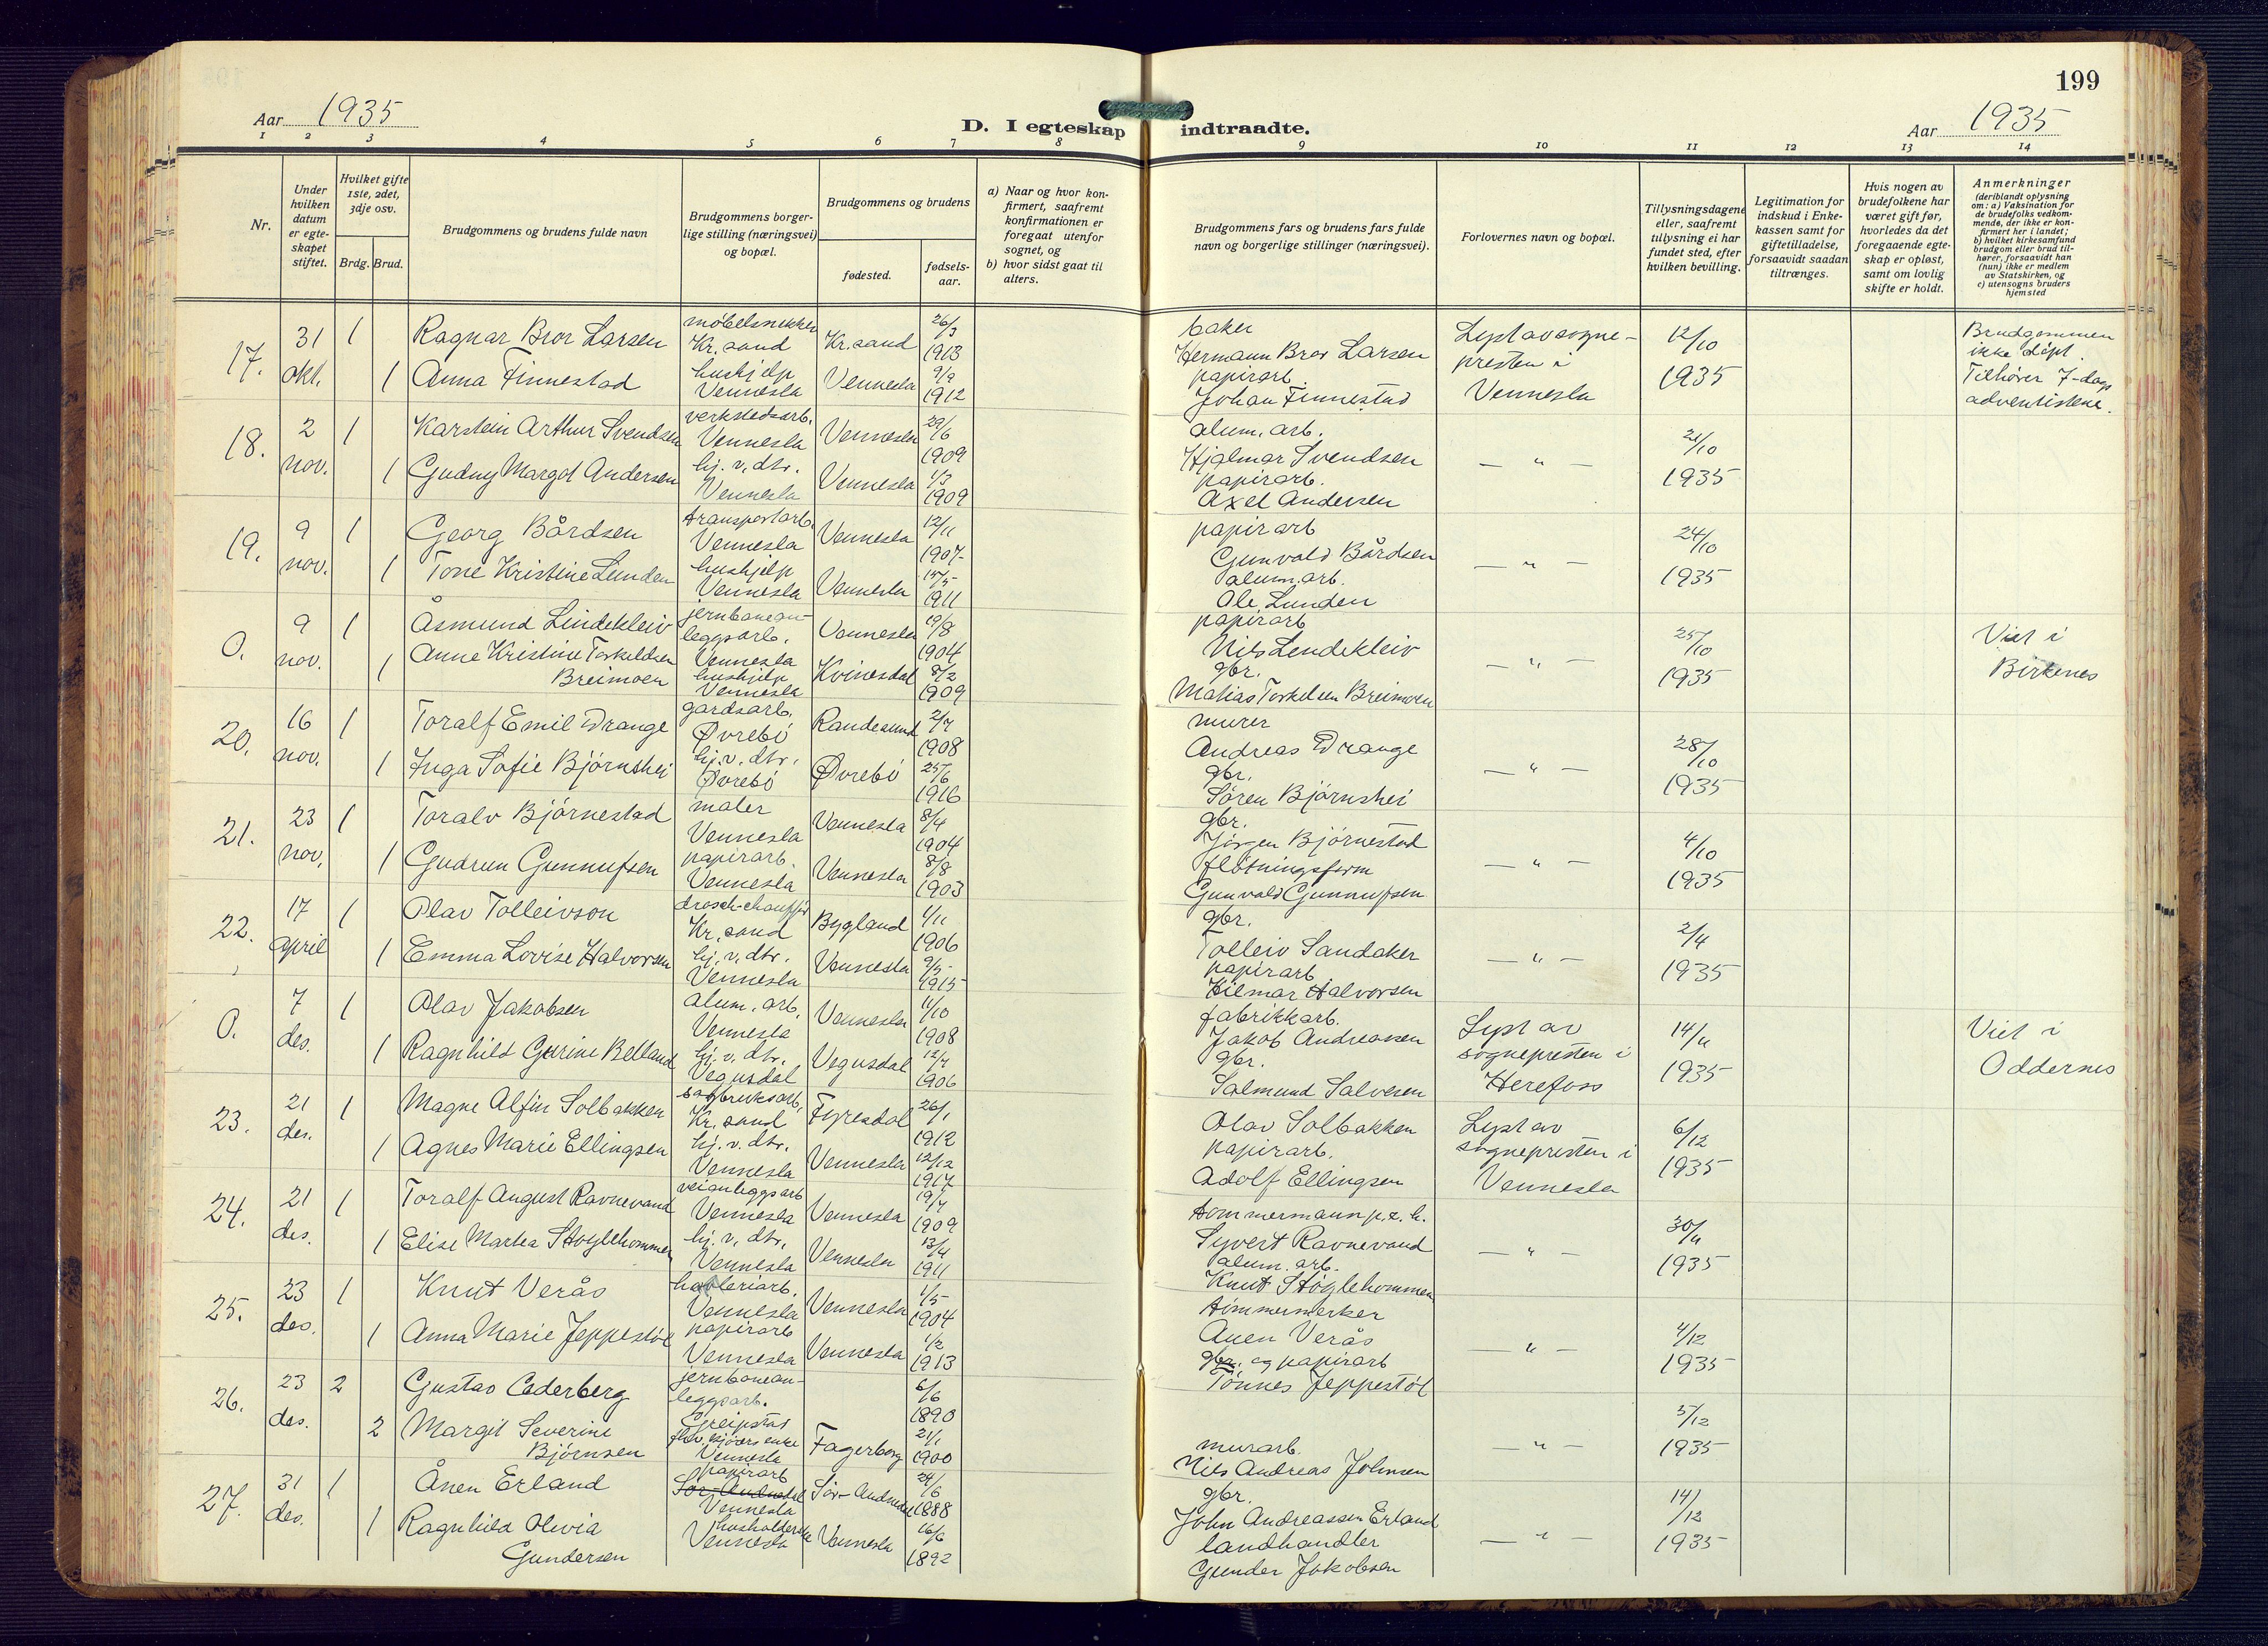 199
Aar 1935
D. I egteskap indtraadte.
Aar 1935
1 2 3 4 5 6 7 8 9 10 11 12 13 14
Nr.
Under hvilken datum er egte-skapet stiftet.
Hvilket gifte 1ste, 2det, 3dje osv.
Brdg. Brud.
Brudgommens og brudens fulde navn
Brudgommens borger-lige stilling (næringsvei) og bopæl.
Brudgommens og brudens
fødested.
fødsels-aar.
a) Naar og hvor kon-firmert, saafremt konfirmationen er foregaat utenfor sognet, og
b) hvor sidst gaat til alters.
Brudgommens fars og brudens fars fulde navn og borgerlige stillinger (næringsvei).
Forlovernes navn og bopæl.
Tillysningsdagene eller, saafremt tillysning ei har fundet sted, efter hvilken bevilling.
Legitimation for indskud i Enke-kassen samt for giftetilladelse, forsaavidt saadan tiltrænges.
Hvis nogen av brudefolkene har været gift før, hvorledes da det foregaaende egte-skap er opløst, samt om lovlig skifte er holdt.
Anmerkninger
(deriblandt oplysning om: a) Vaksination for de brudefolks vedkom-mende, der ikke er kon-firmert her i landet; b) hvilket kirkesamfund brudgom eller brud til-hører, forsaavidt han (hun) ikke er medlem av Statskirken, og c) utensogns bruders hjemsted
17. 31 okt. 1 Ragnar Bror Larsen møbelsnikker Kr.sand Kr.sand 26/3 1913 baker Hermann Bror Larsen Lyst av sogne-presten i Vennesla 12/10 1935 Brudgommen ikke døpt. Tilhører 7-dags adventistene.
1 Anna Finnestad hushjelp Vennesla Vennesla 9/9 1912 papirarb. Johan Finnestad
18. 2 nov. 1 Karstein Arthur Svendsen verkstedsarb. Vennesla Vennesla 29/6 1909 alum. arb. Hjalmar Svendsen — " — 21/10 1935
1 Gudny Margot Andersen hj. v. dtr. Vennesla Vennesla 1/3 1909 papirarb. Axel Andersen
19. 9 nov. 1 Georg Bårdsen transportarb. Vennesla Vennesla 12/11 1907 papirarb Gunvald Bårdsen — " — 24/10 1935
1 Tone Kristine Lunden hushjelp Vennesla Vennesla 1911 alum. arb. Ole Lunden
0. 9 nov. 1 Åsmund Lindekleiv jernbanean-leggsarb. Vennesla Vennesla 19/8 1904 papirarb Nils Lendekleiv — " — 25/10 1935 Viet i Birkenes
1 Anne Kristine Torkeldsen Breimoen hushjelp Vennesla Kvinesdal 8/2 1909 gbr. Matias Torkelsen Breimoen
20. 16 nov. 1 Toralf Emil Drange gardsarb. Øvrebö Randesund 2/7 1908 murer Andreas Drange — " — 28/10 1935
1 Inga Sofie Bjørnshei hj. v. dtr. Øvrebö Øvrebö 25/6 1916 gbr. Søren Bjørnshei
21. 23 nov. 1 Toralv Bjørnestad maler Vennesla Vennesla 8/4 1904 gbr. Jørgen Bjørnestad — " — 4/10 1935
1 Gudrun Gunnufsen papirarb. Vennesla Vennesla 8/8 1903 fløtningsform Gunvald Gunnufsen
22. 17 april 1 Olav Tolleivson drosch-chauffør Kr.sand Bygland 1/11 1906 gbr. Tolleiv Sandaker — " — 2/4 1935
1 Emma Lovise Halvorsen hj. v. dtr. Vennesla Vennesla 9/5 1915 papirarb Hilmar Halvorsen
0. 7 des. 1 Olav Jakobsen alum. arb. Vennesla Vennesla 11/10 1908 fabrikkarb. Jakob Andreassen Lyst av sognepresten i Herefoss 14/11 1935 Viet i Oddernes
1 Ragnhild Gurine Belland hj. v. dtr. Vegusdal Vegusdal 12/7 1906 gbr. Salmund Salvesen
23. 21 des. 1 Magne Alfin Solbakken sagbruksarb. Kr.sand Fyresdal 26/1 1912 Olav Solbakken Lyst av sognepresten i Vennesla 6/12 1935
1 Agnes Marie Ellingsen hj. v. dtr. Vennesla Vennesla 12/12 1917 papirarb. Adolf Ellingsen
24. 21 des. 1 Toralf August Ravnevand veianleggsarb Vennesla Vennesla 19/7 1909 tømmermann p. t. h. Syvert Ravnevand — " — 30/11 1935
1 Elise Marta Støylehommen hj. v. dtr. Vennesla Vennesla 13/4 1911 alum. arb. Knut Støylehommen
25. 23 des. 1 Knut Verås høvleriarb. Vennesla Vennesla 1/5 1904 tømmermerker Anen Verås — " — 4/12 1935
1 Anna Marie Jeppestøl papirarb Vennesla Vennesla 1/2 1913 gbr. og papirarb Tønnes Jeppestøl
26. 23 des. 2 Gustav Cederberg jernbanean-leggsarb. Greipstad 6/6 1890 — " — 5/12 1935
2 Margit Severine Bjørnsen enke Vennesla Fagerborg 21/1 1900 murarb. Nils Andreas Johnsen
27. 31 des. 1 Ånen Erland papirarb Sør-Audnedal Vennesla Sør-Audnedal 24/6 1888 gbr. John Andreassen Erland — " — 14/12 1935
1 Ragnhild Olivia Gundersen husholderske Vennesla Vennesla 16/6 1892 landhandler Gunder Jakobsen